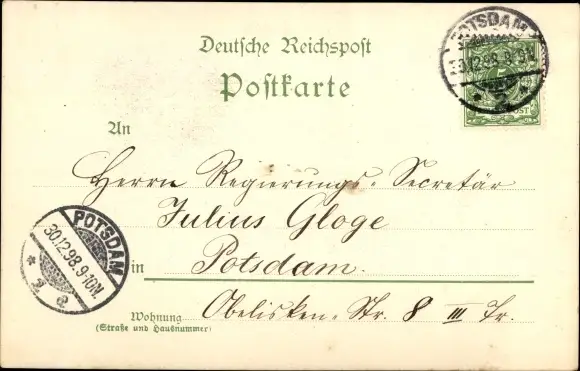 POTSDAM
30.12.98.9-
Deutsche Reichspost
Postkarte
An
Herrn Regierungs-Secretär
Julius Gloge
in Potsdam.
Wohnung Obelisken-Str. 8 III Tr.
(Straße und Hausnummer)
POTSDAM
30.12.98.9-10N.